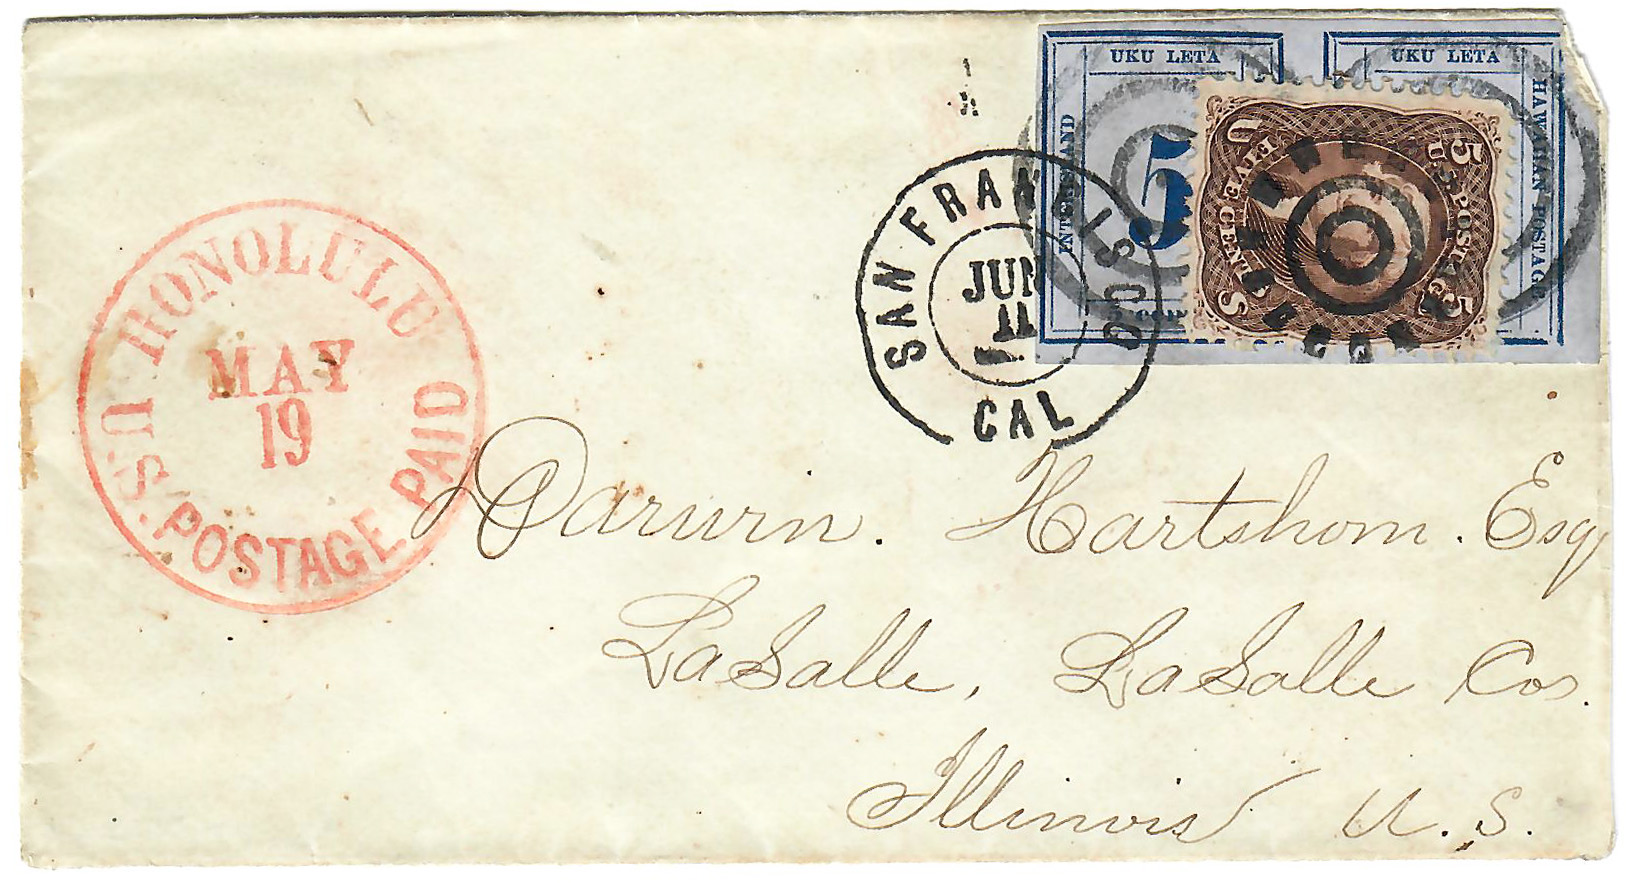 HONOLULU
MAY
19
U.S. POSTAGE PAID
SAN FRANCISCO
JUN
11
CAL
UKU LETA
UKU LETA
5
HAWAIIAN POSTAGE
5 U.S. POSTAGE 5
U FIVE CENTS S
Darwin. Hartshorn. Esq
LaSalle, LaSalle Co.
Illinois U.S.